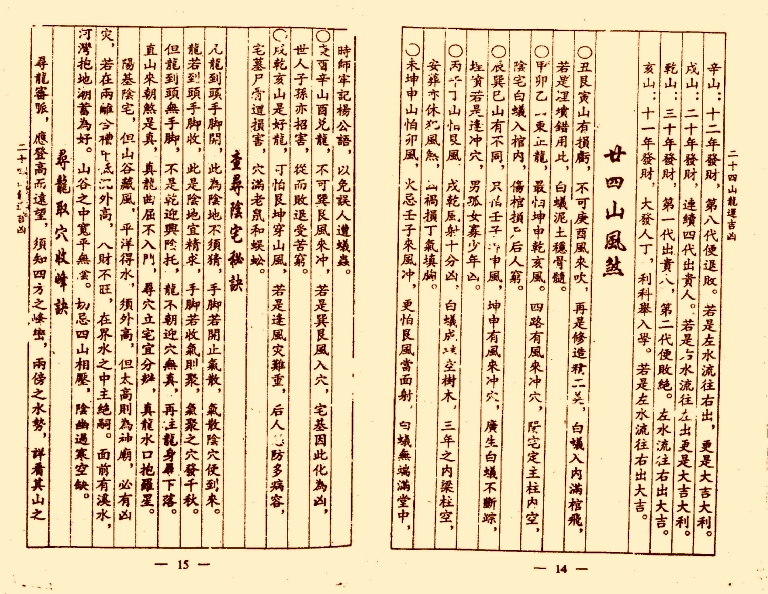 二十四山龍運吉凶
辛山：十二年發財，第八代便退敗。若是左水流往右出，更是大吉大利。
戌山：二十年發財，連續四代出貴人。若是右水流往左出更是大吉大利。
乾山：三十年發財，第一代出貴人，第二代便敗絕。左水流往右出大吉。
亥山：十一年發財，大發人丁，利科舉入學。若是左水流往右出大吉。
廿四山風煞
〇丑艮寅山有損虧，不可庚酉風來吹，再是修造犯二美，白蟻入內滿棺飛，
若是埋墳錯用此，白蟻泥土穩骨髓。
〇甲卯乙山東正龍，最怕坤申乾亥風。四路有風來冲穴，陽宅定主柱內空，
陰宅白蟻入棺內，傷棺損尸后人窮。
〇辰巽巳山有不同，只怕壬子癸申風，坤申有風來冲穴，廣生白蟻不斷踪，
埋墳若是逢冲穴，男孤女寡少年凶。
〇丙午丁山怕艮風，戌乾風射十分凶，白蟻成 空樹木，三年之內梁柱空，
安葬亦休犯風煞，出禍損丁氣填胸。
〇未坤申山怕卯風，火忌壬子來風冲，更怕艮風當面射，白蟻無端滿堂中，
— 14 —
時師牢記楊公語，以免誤人遭蟻蟲。
〇庚酉辛山酉兌龍，不可巽艮風來冲，若是巽艮風入穴，宅基因此化為凶，
世人子孫亦招害，從而敗退受苦窮。
〇戌乾亥山是好龍，可怕艮坤穿山風，若是逢風灾難重，后人 防多病容，
宅墓尸骨遭損害，穴滿老鼠和蜈蚣。
查尋陰宅秘訣
凡龍到頭手脚開，此為陰地不須猜，手脚若開止氣散，氣散陰穴便到來。
龍若到頭手脚收，此是陰地宜精求，手脚若收氣則聚，氣聚之穴發千秋。
但龍到頭無手脚，不是乾迎興陰托，龍不朝迎穴無真，再往龍身尋下落。
直山來朝然是真，真龍曲屈不入門，尋穴立宅宜分辨，真龍水口抱羅星。
陽基陰宅，但山谷藏風，平洋得水，須外高，但太高則為神廟，必有凶
灾，若在兩離合襟 底二外高，八財不旺，在界水之中主絕嗣。面前有溪水，
河灣抱地潮蓄為好。山谷之中寬平無害。切忌四山相壓，陰幽過寒空缺。
尋龍取穴收峰訣
尋龍審脈，應登高而遠望，須知四方之峰巒，兩傍之水勢，詳看其山之
二十四山龍運吉凶
— 15 —